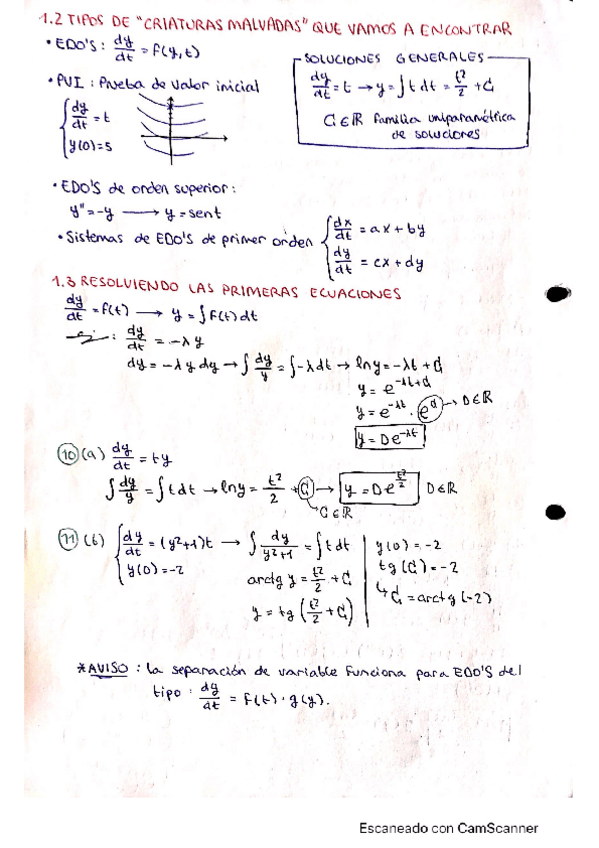 1.2 TIPOS DE "CRIATURAS MALVADAS" QUE VAMOS A ENCONTRAR
• EDO'S : dy/dt = f(y,t)
• PVI : Prueba de valor inicial
{ dy/dt = t
y(0)=5
SOLUCIONES GENERALES
dy/dt = t → y = ∫ t dt = t²/2 + C
C ∈ ℝ familia uniparamétrica
de soluciones
• EDO'S de orden superior:
y'' = -y → y = sent
• Sistemas de EDO'S de primer orden { dx/dt = ax + by
dy/dt = cx + dy
1.3 RESOLVIENDO LAS PRIMERAS ECUACIONES
dy/dt = f(t) → y = ∫ f(t) dt
Ej : dy/dt = -λy
dy = -λ y dy → ∫ dy/y = ∫ -λ dt → ln y = -λt + C
y = e^(-λt+C)
y = e^(-λt) · e^C → D ∈ ℝ
y = D e^(-λt)
10 (a) dy/dt = ty
∫ dy/y = ∫ t dt → ln y = t²/2 + C → y = D e^(t²/2) D ∈ ℝ
C ∈ ℝ
11 (b) { dy/dt = (y²+1)t → ∫ dy/(y²+1) = ∫ t dt
y(0) = -2
arctg y = t²/2 + C
y = tg (t²/2 + C)
y(0) = -2
tg (C) = -2
↳ C = arctg (-2)
* AVISO : la separación de variable funciona para EDO'S del
tipo : dy/dt = f(t) · g(y).
Escaneado con CamScanner